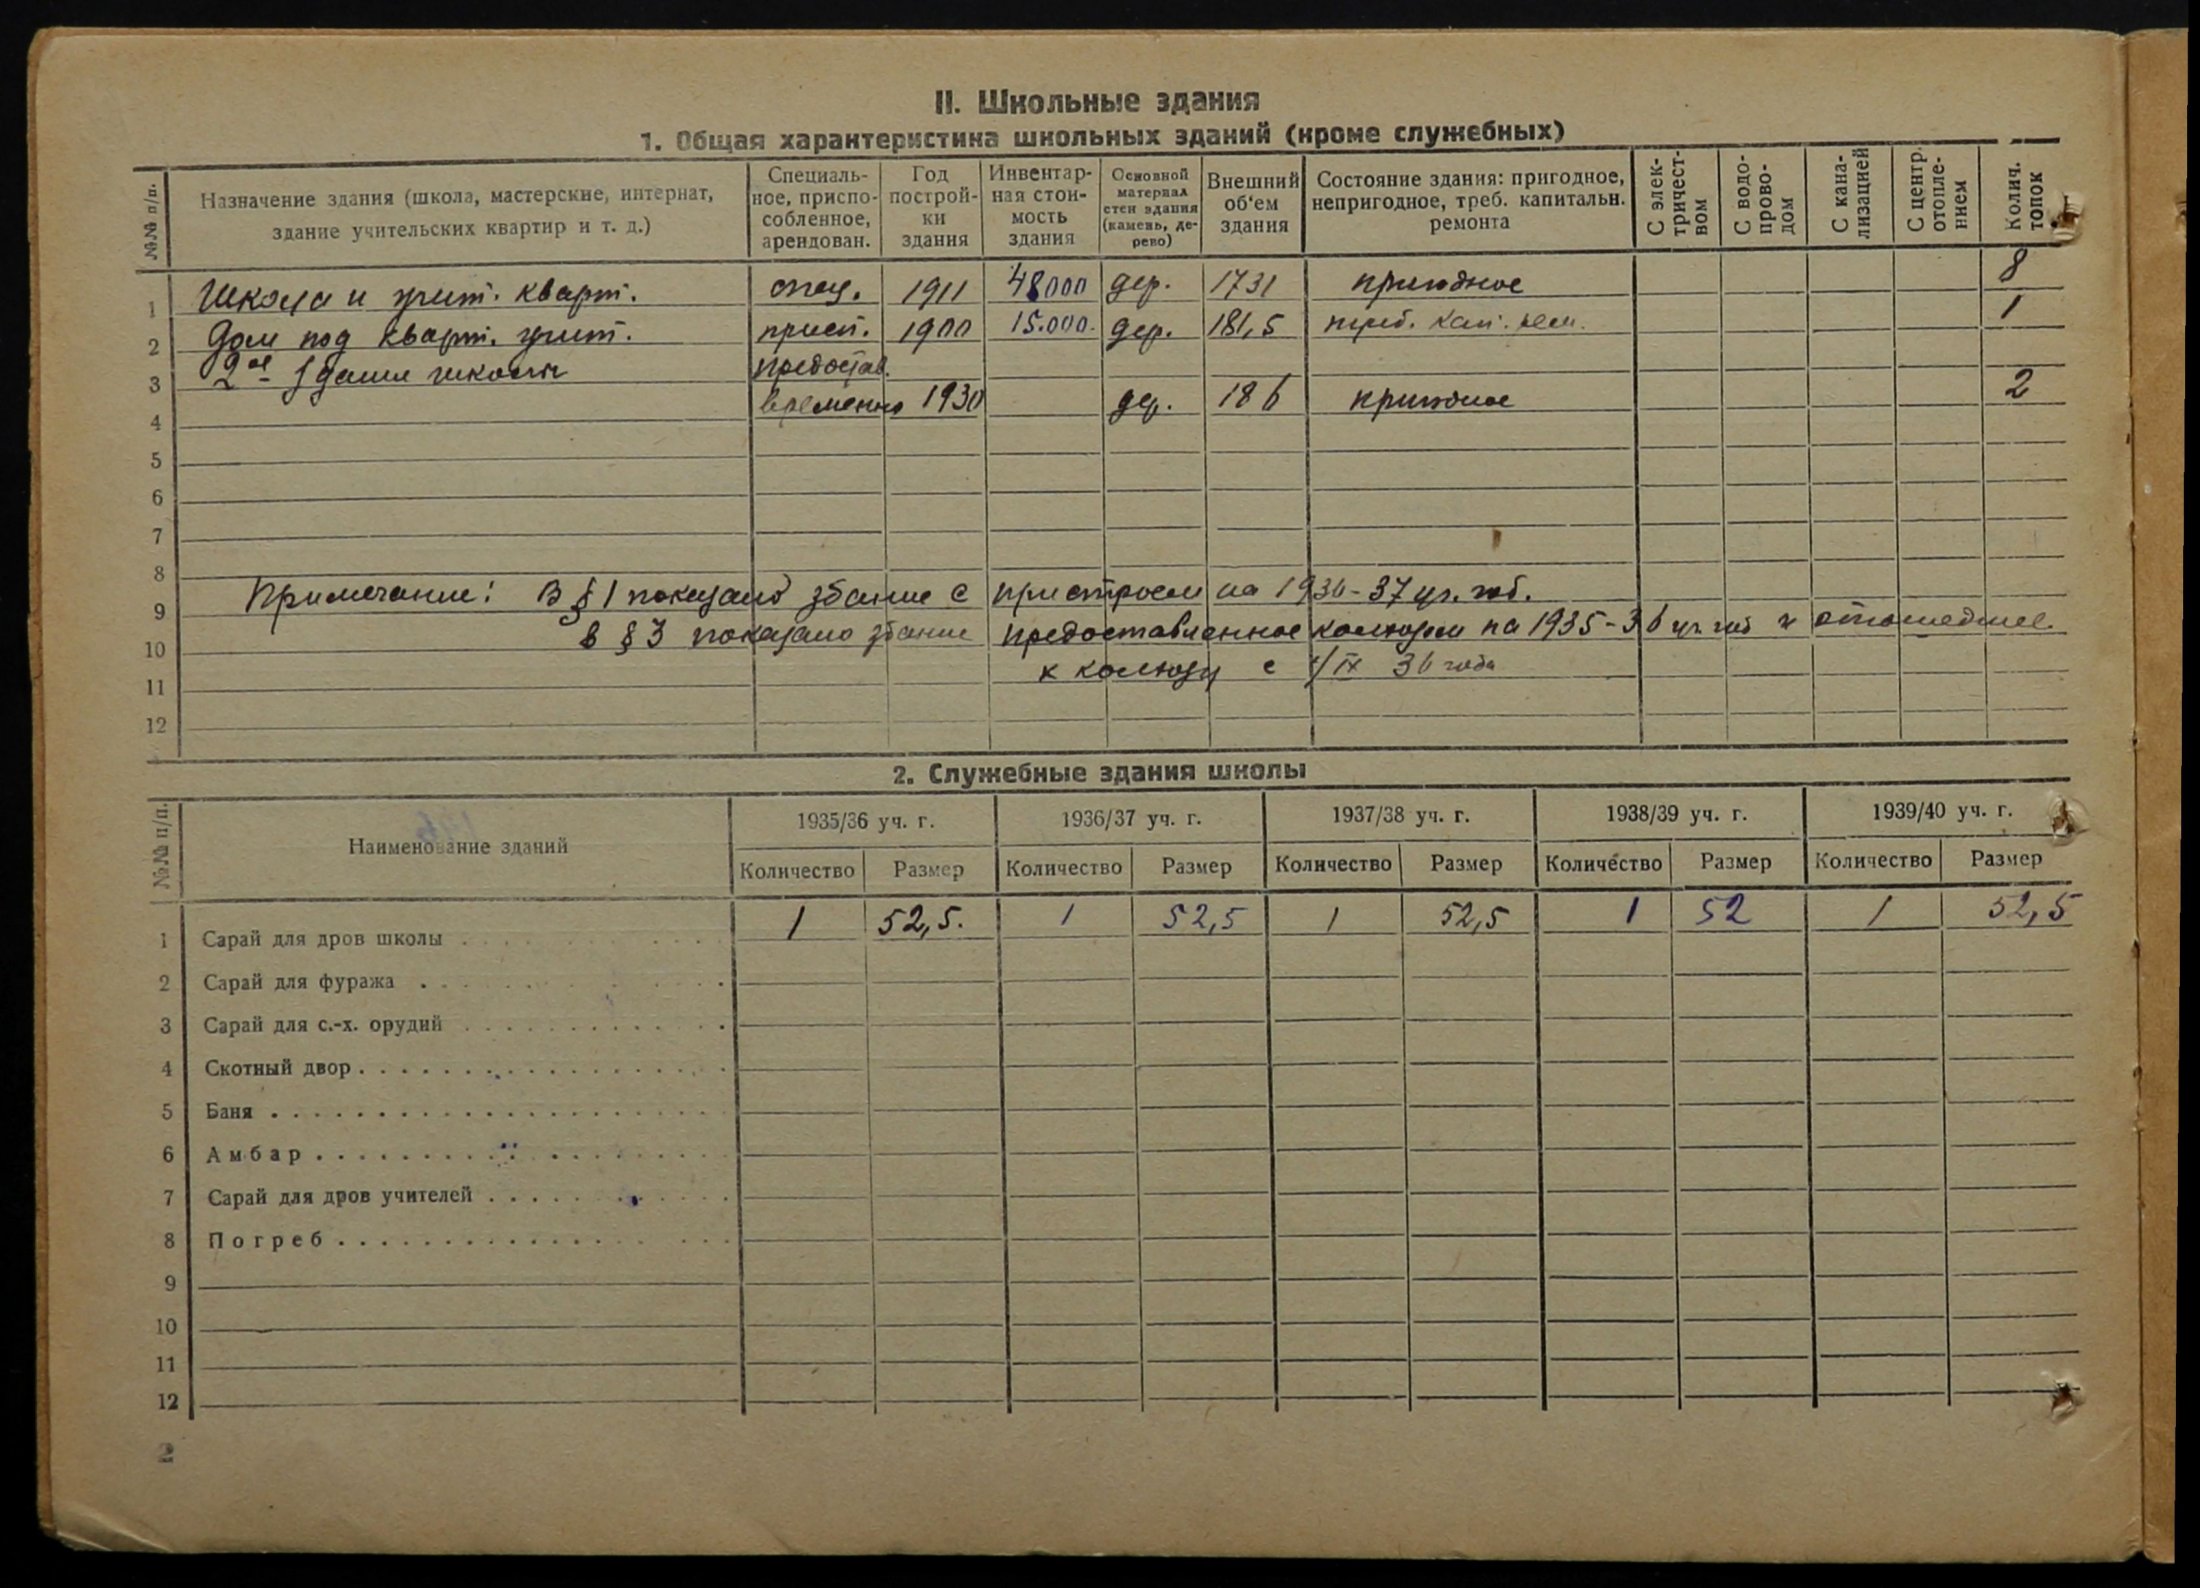 II. Школьные здания
1. Общая характеристика школьных зданий (кроме служебных)
№№ п/п. Назначение здания (школа, мастерские, интернат, здание учительских квартир и т. д.) Специаль-ное, приспо-собленное, арендован. Год построй-ки здания Инвентар-ная стои-мость здания Основной материал стен здания (камень, де-рево) Внешний об‘ем здания Состояние здания: пригодное, непригодное, треб. капитальн. ремонта С элек-тричест-вом С водо-прово-дом С кана-лизацией С центр. отопле-нием Колич. топок
1 Школа и учит. кварт. спец. 1911 48000 дер. 1731 пригодное 8
2 Дом под кварт. учит. присп. 1900 15.000. дер. 181,5 треб. кап. рем. 1
3 2ое здание школы предостав.
4 временно 1930 дер. 186 пригодное 2
5
6
7
8
9 Примечание: В § 1 показано здание с пристроем на 1936-37 уч. год.
10 в § 3 показано здание предоставленное колхозом на 1935-36 уч. год и отошедшее
11 к колхозу с 1/IX 36 года
12
2. Служебные здания школы
№№ п/п. Наименование зданий 1935/36 уч. г. 1936/37 уч. г. 1937/38 уч. г. 1938/39 уч. г. 1939/40 уч. г.
Количество Размер Количество Размер Количество Размер Количество Размер Количество Размер
1 Сарай для дров школы 1 52,5. 1 52,5 1 52,5 1 52 1 52,5
2 Сарай для фуража
3 Сарай для с.-х. орудий
4 Скотный двор
5 Баня
6 Амбар
7 Сарай для дров учителей
8 Погреб
9
10
11
12
2